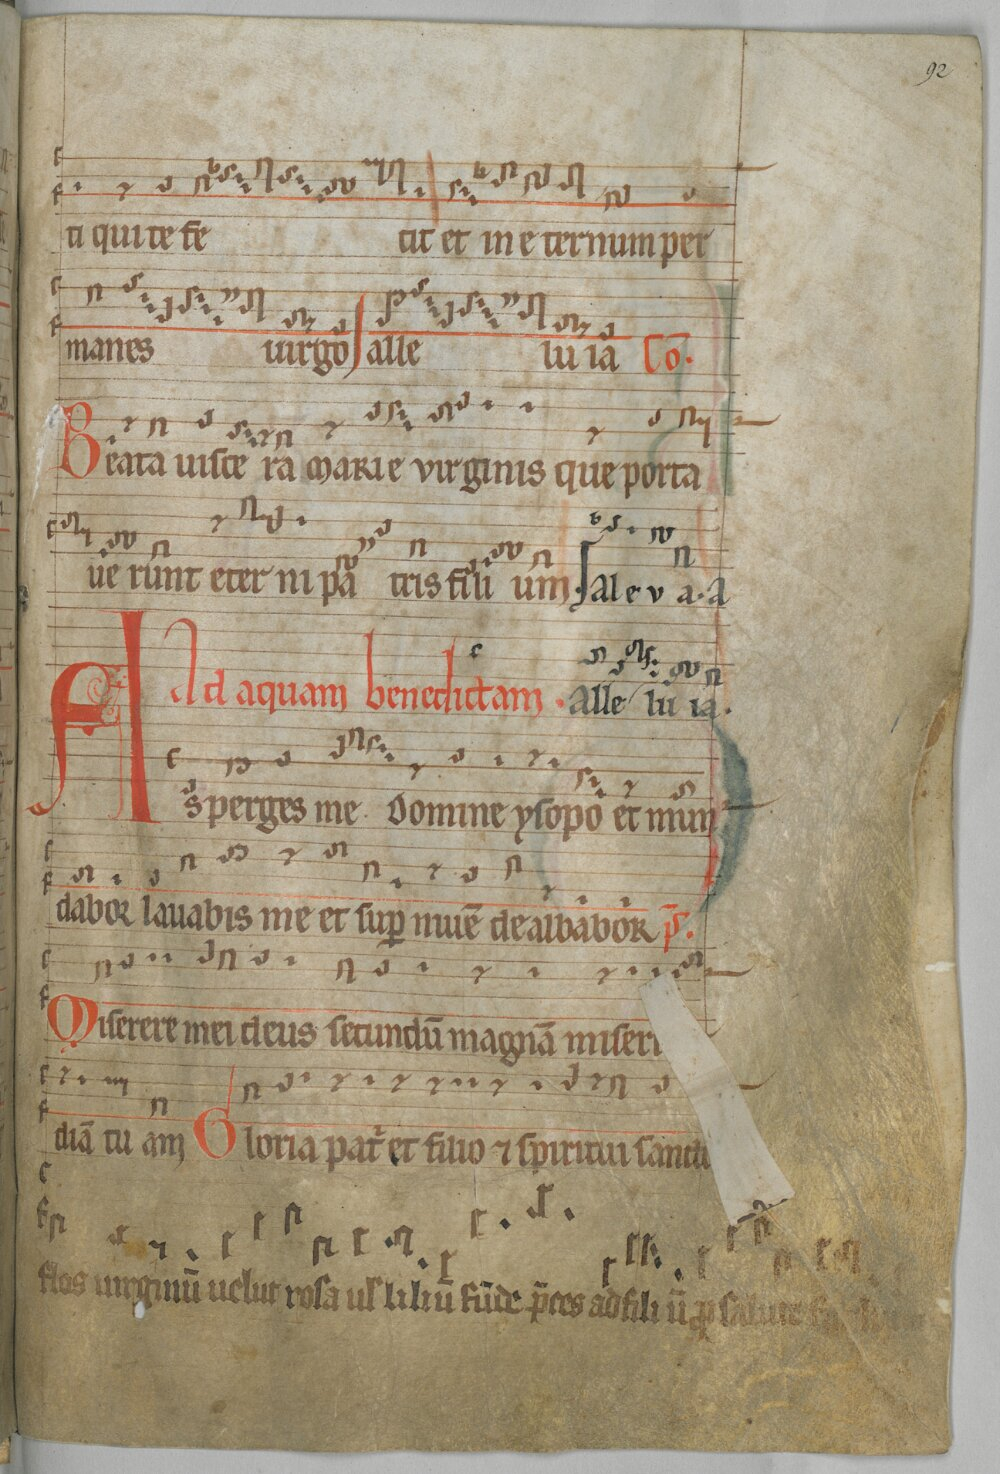 92
ti qui te fe cit et in e ternum per
manes uirgo alle lu ia Cō.
Beata uisce ra marie virginis que porta
ue runt eter ni pa tris fili um. ale v a. a
Ad aquam benedictam. alle lu ia.
Asperges me. Domine ysopo et mun
dabor lauabis me et sup niuē dealbabor p̄s.
Miserere mei deus secundū magnā miseri
diā tu am Gloria pat̄ et filio ⁊ spiritui sancto
flos uirginū uelut rosa ul̄ liliū fūde p̄ces ad fili ū p salute